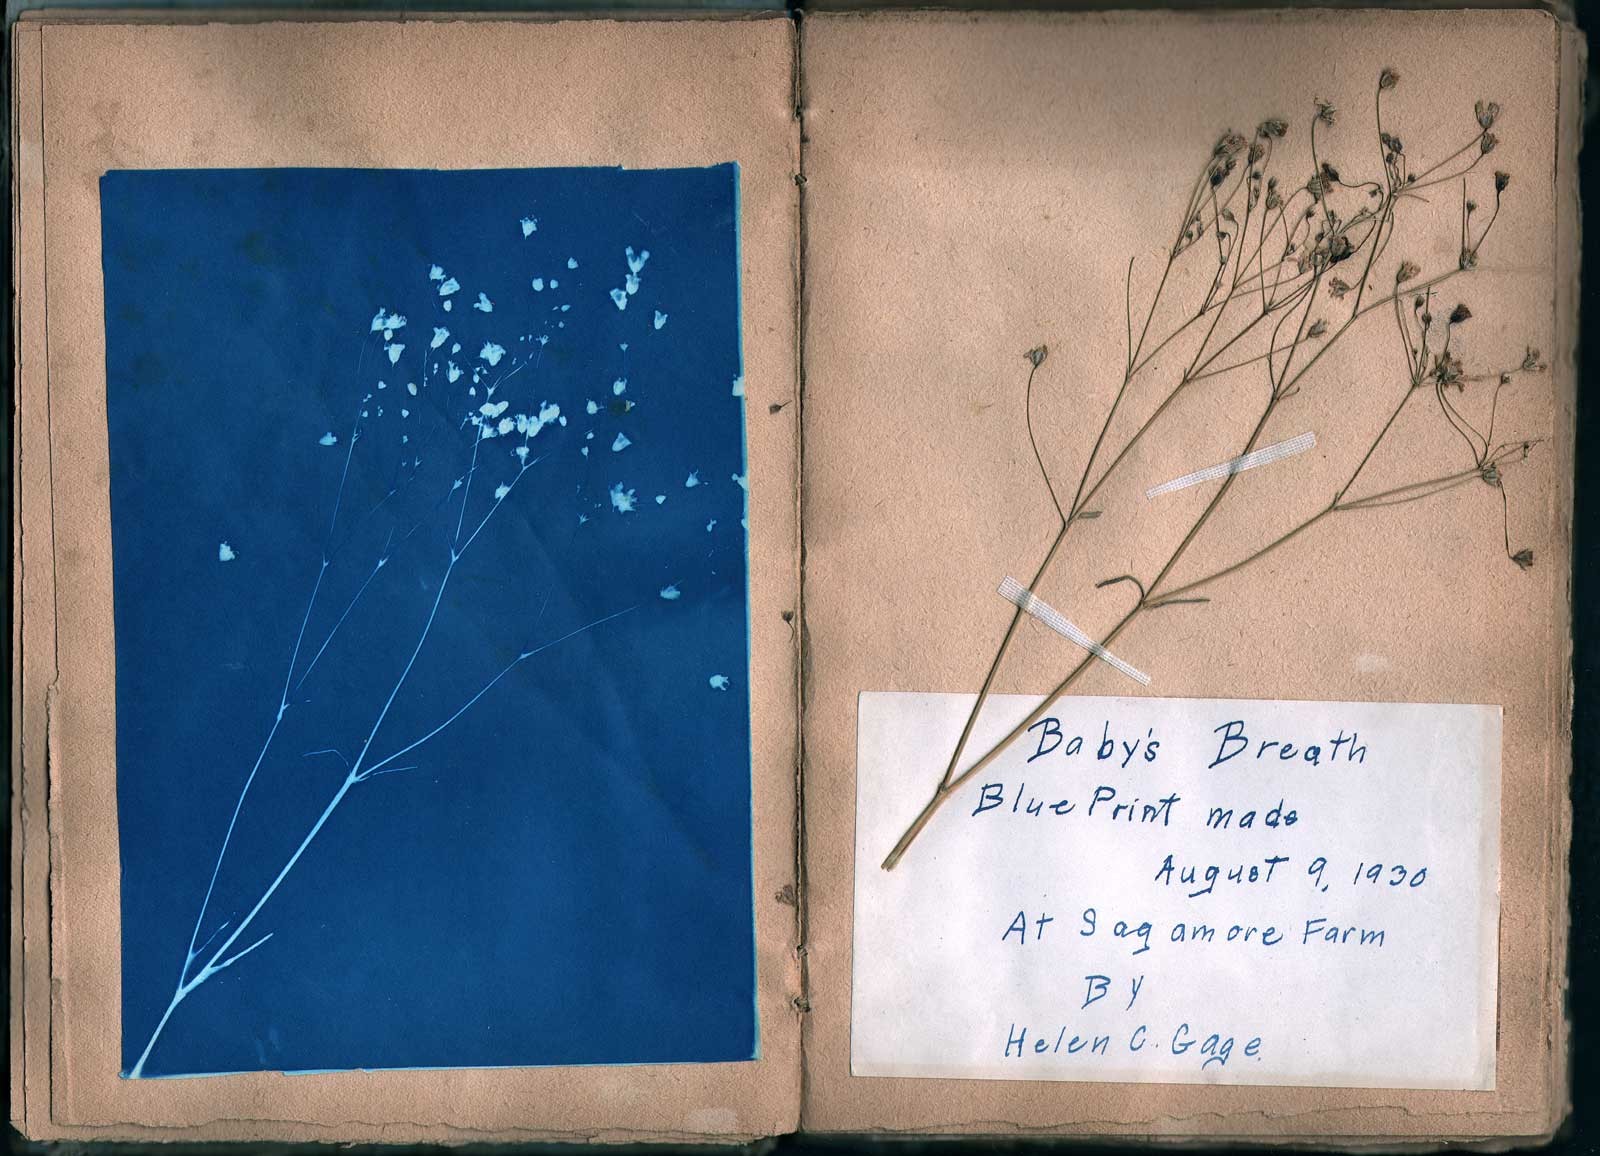 Baby's Breath
Blue Print made
August 9, 1930
At Sagamore Farm
By
Helen C. Gage.